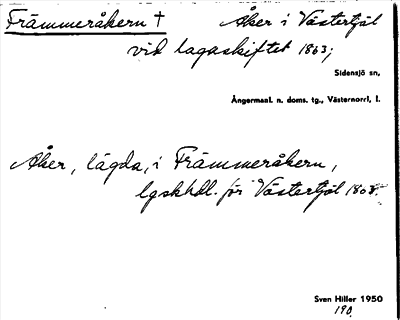 Främmeråkern † Åker i Västertjäl
vid lagaskiftet 1863;
Sidensjö sn,
Ångermanl. n. doms. tg., Västernorrl, l.
Åker, lägda, i Främmeråkern,
lgskhdl. för Västertjäl 1808.
Sven Hiller 1950
190.